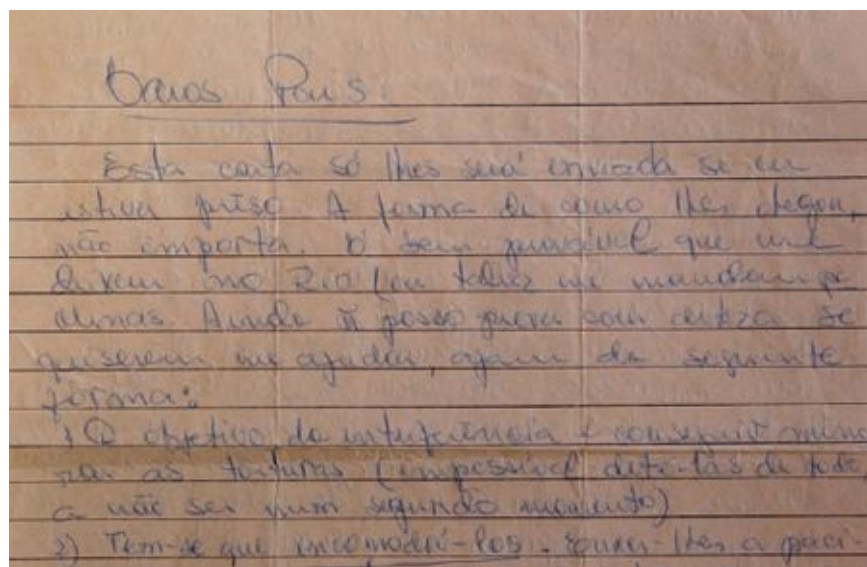 Caros Pais:
Esta carta só lhes será enviada se eu
estiver preso. A forma de como lhes chegou,
não importa. É bem possível que me
deixem no Rio (ou talvez me mandem p/
Minas. Ainda ñ posso prever com certeza. Se
quiserem me ajudar, ajam da seguinte
forma:
1) O objetivo da interferência é conseguir mino-
rar as torturas (impossível detê-las de todo
a não ser num segundo momento)
2) Tem-se que incomodá-los. Encher-lhes a paci-